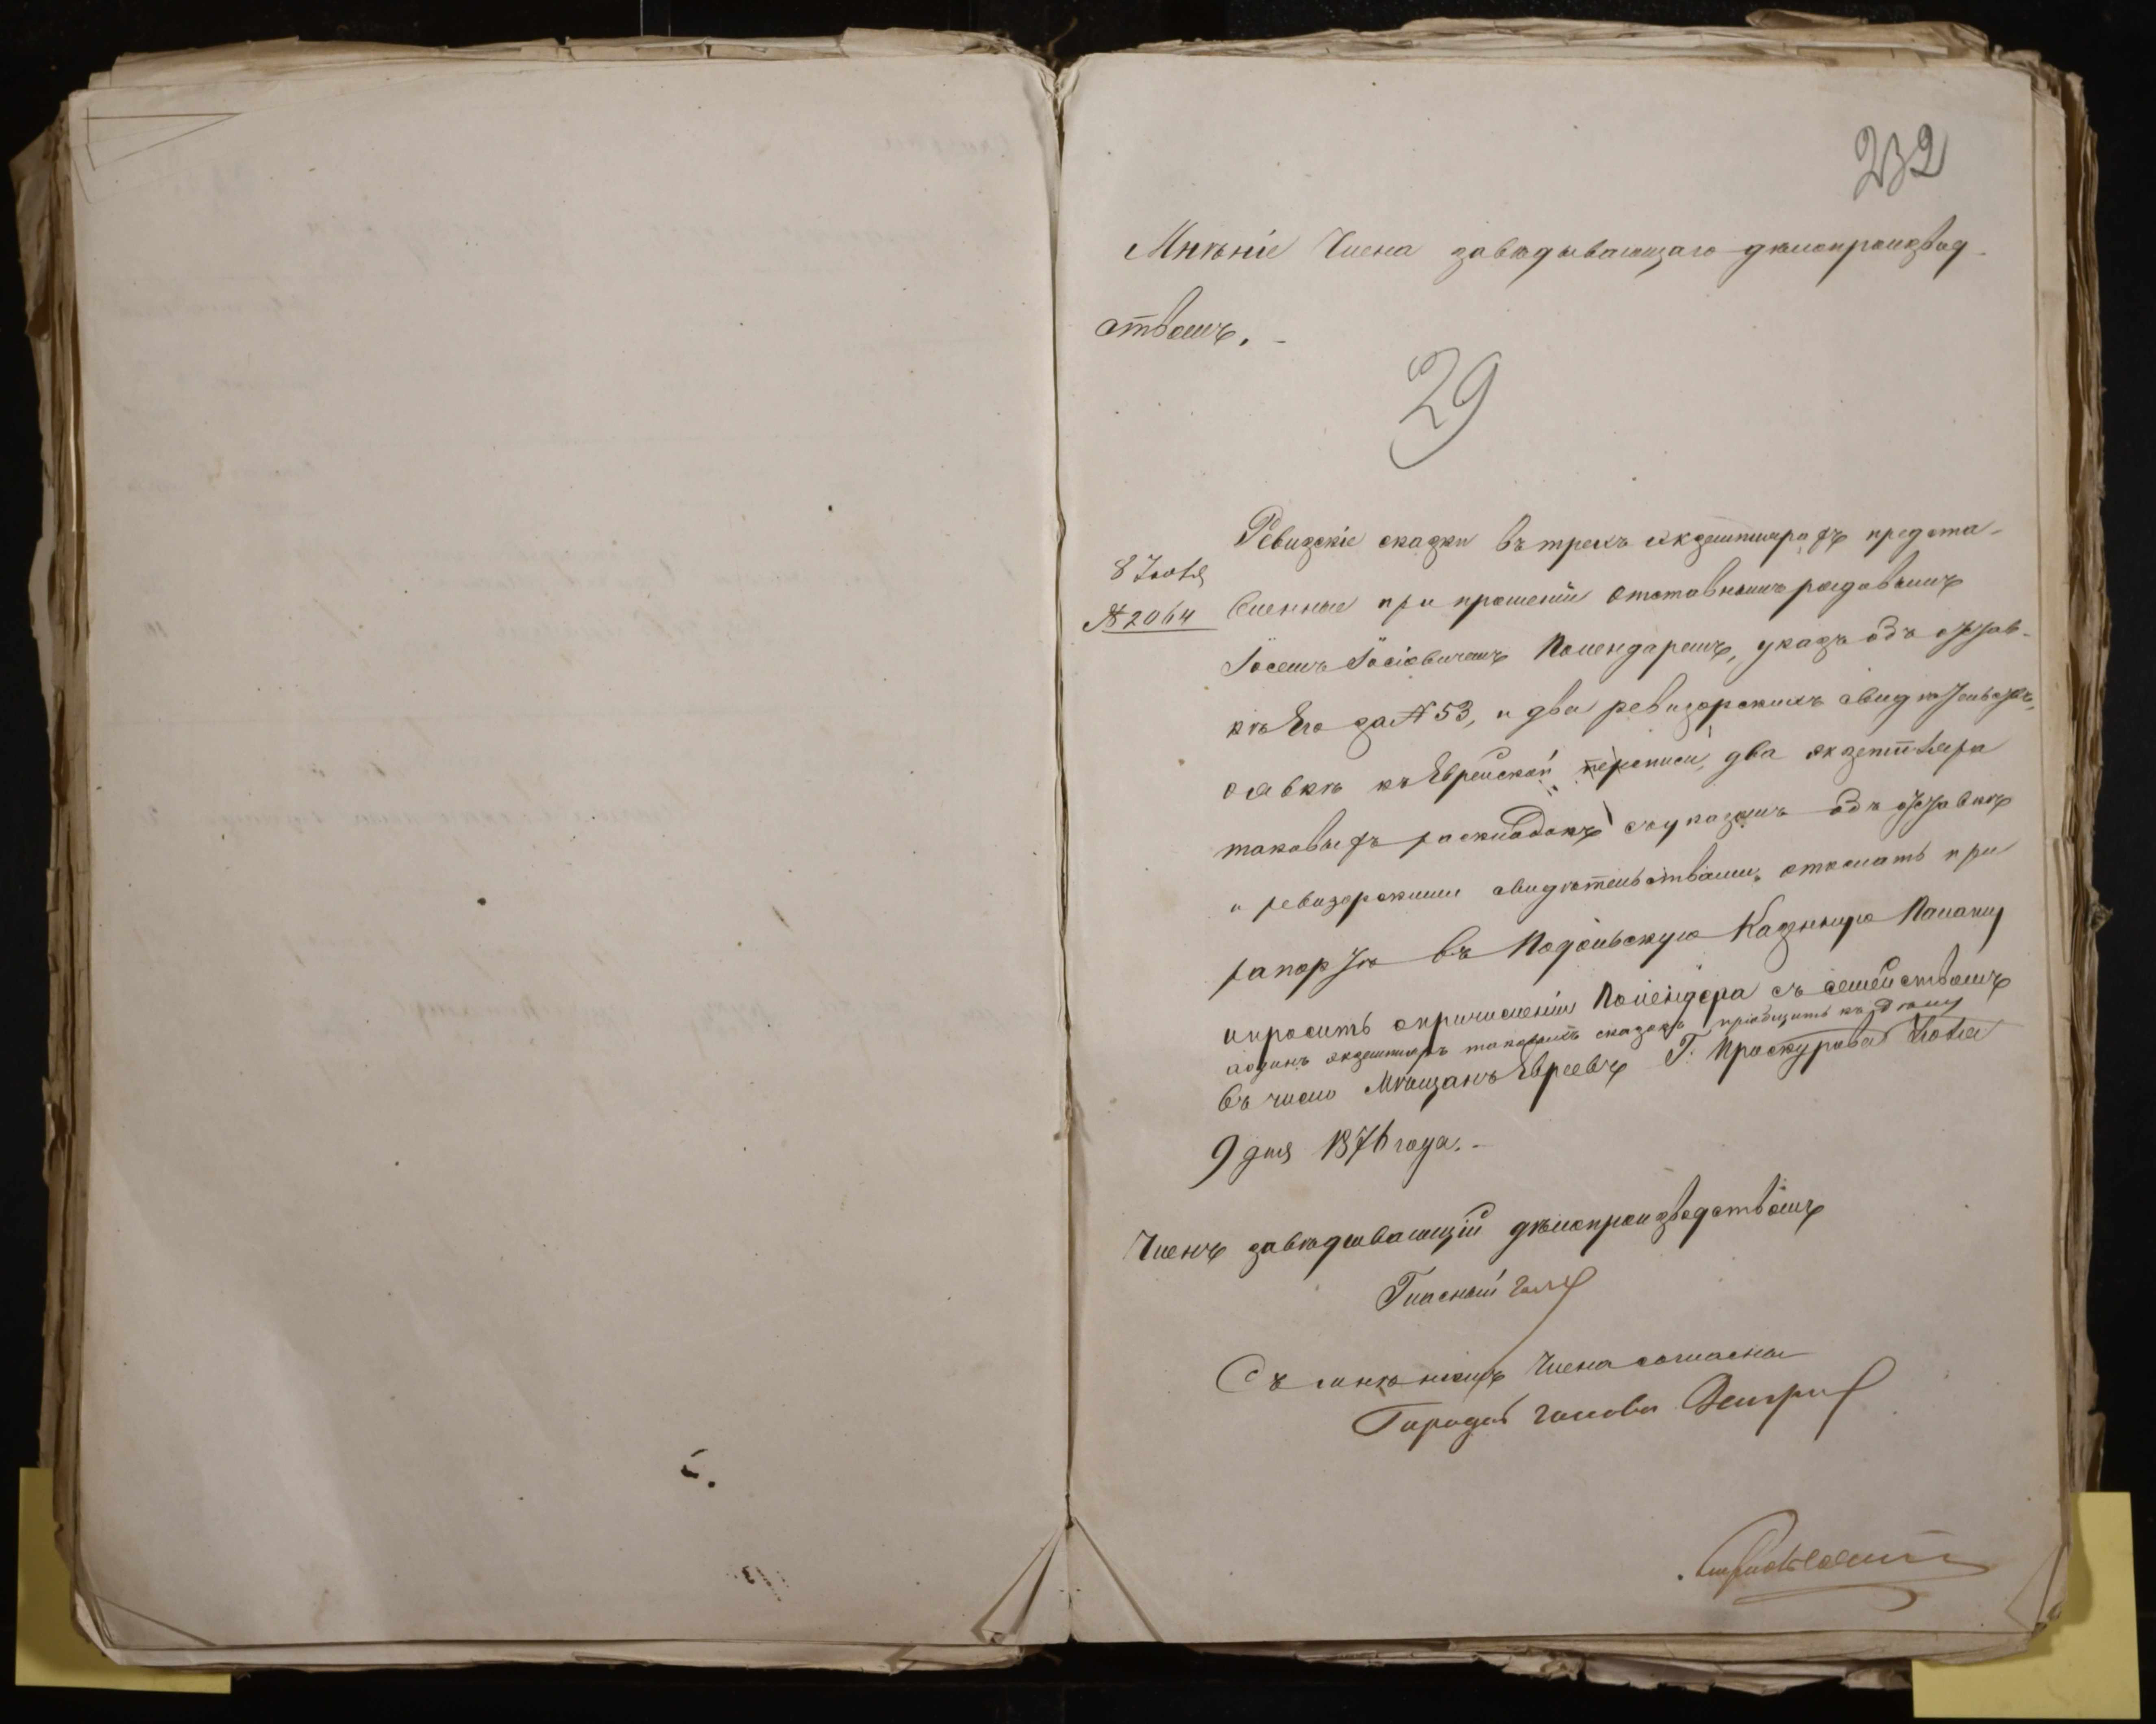 232
Мнѣніе Члена завѣдывающаго дѣлопроизвод-
ствомъ. -
29
8 Іюля
№ 2064
Ревизскіе сказки въ трехъ экземплярахъ предста-
вленные при прошеніи отставнымъ рядовымъ
Іосемъ Іосіовичемъ Полендаремъ, указъ объ отстав-
кѣ Его за № 53, и два ревизорскихъ свидѣтельства,
о явкѣ къ Еврейской переписи, два экземпляра
таковыхъ съ указомъ объ отставкѣ
и ревизорскими свидѣтельствами, отослать при
рапортѣ въ Подольскую Казенную Палату
и просить о причисленіи Полендера съ семействомъ
а одинъ экземпляръ таковыхъ сказокъ пріобщить къ дѣлу
въ число Мѣщанъ Евреевъ Г. Проскурова Іюля
9 дня 1876 года. -
Членъ завѣдывающій дѣлопроизводствомъ
Гласный
Съ мнѣніемъ Члена согласны
Городск голова